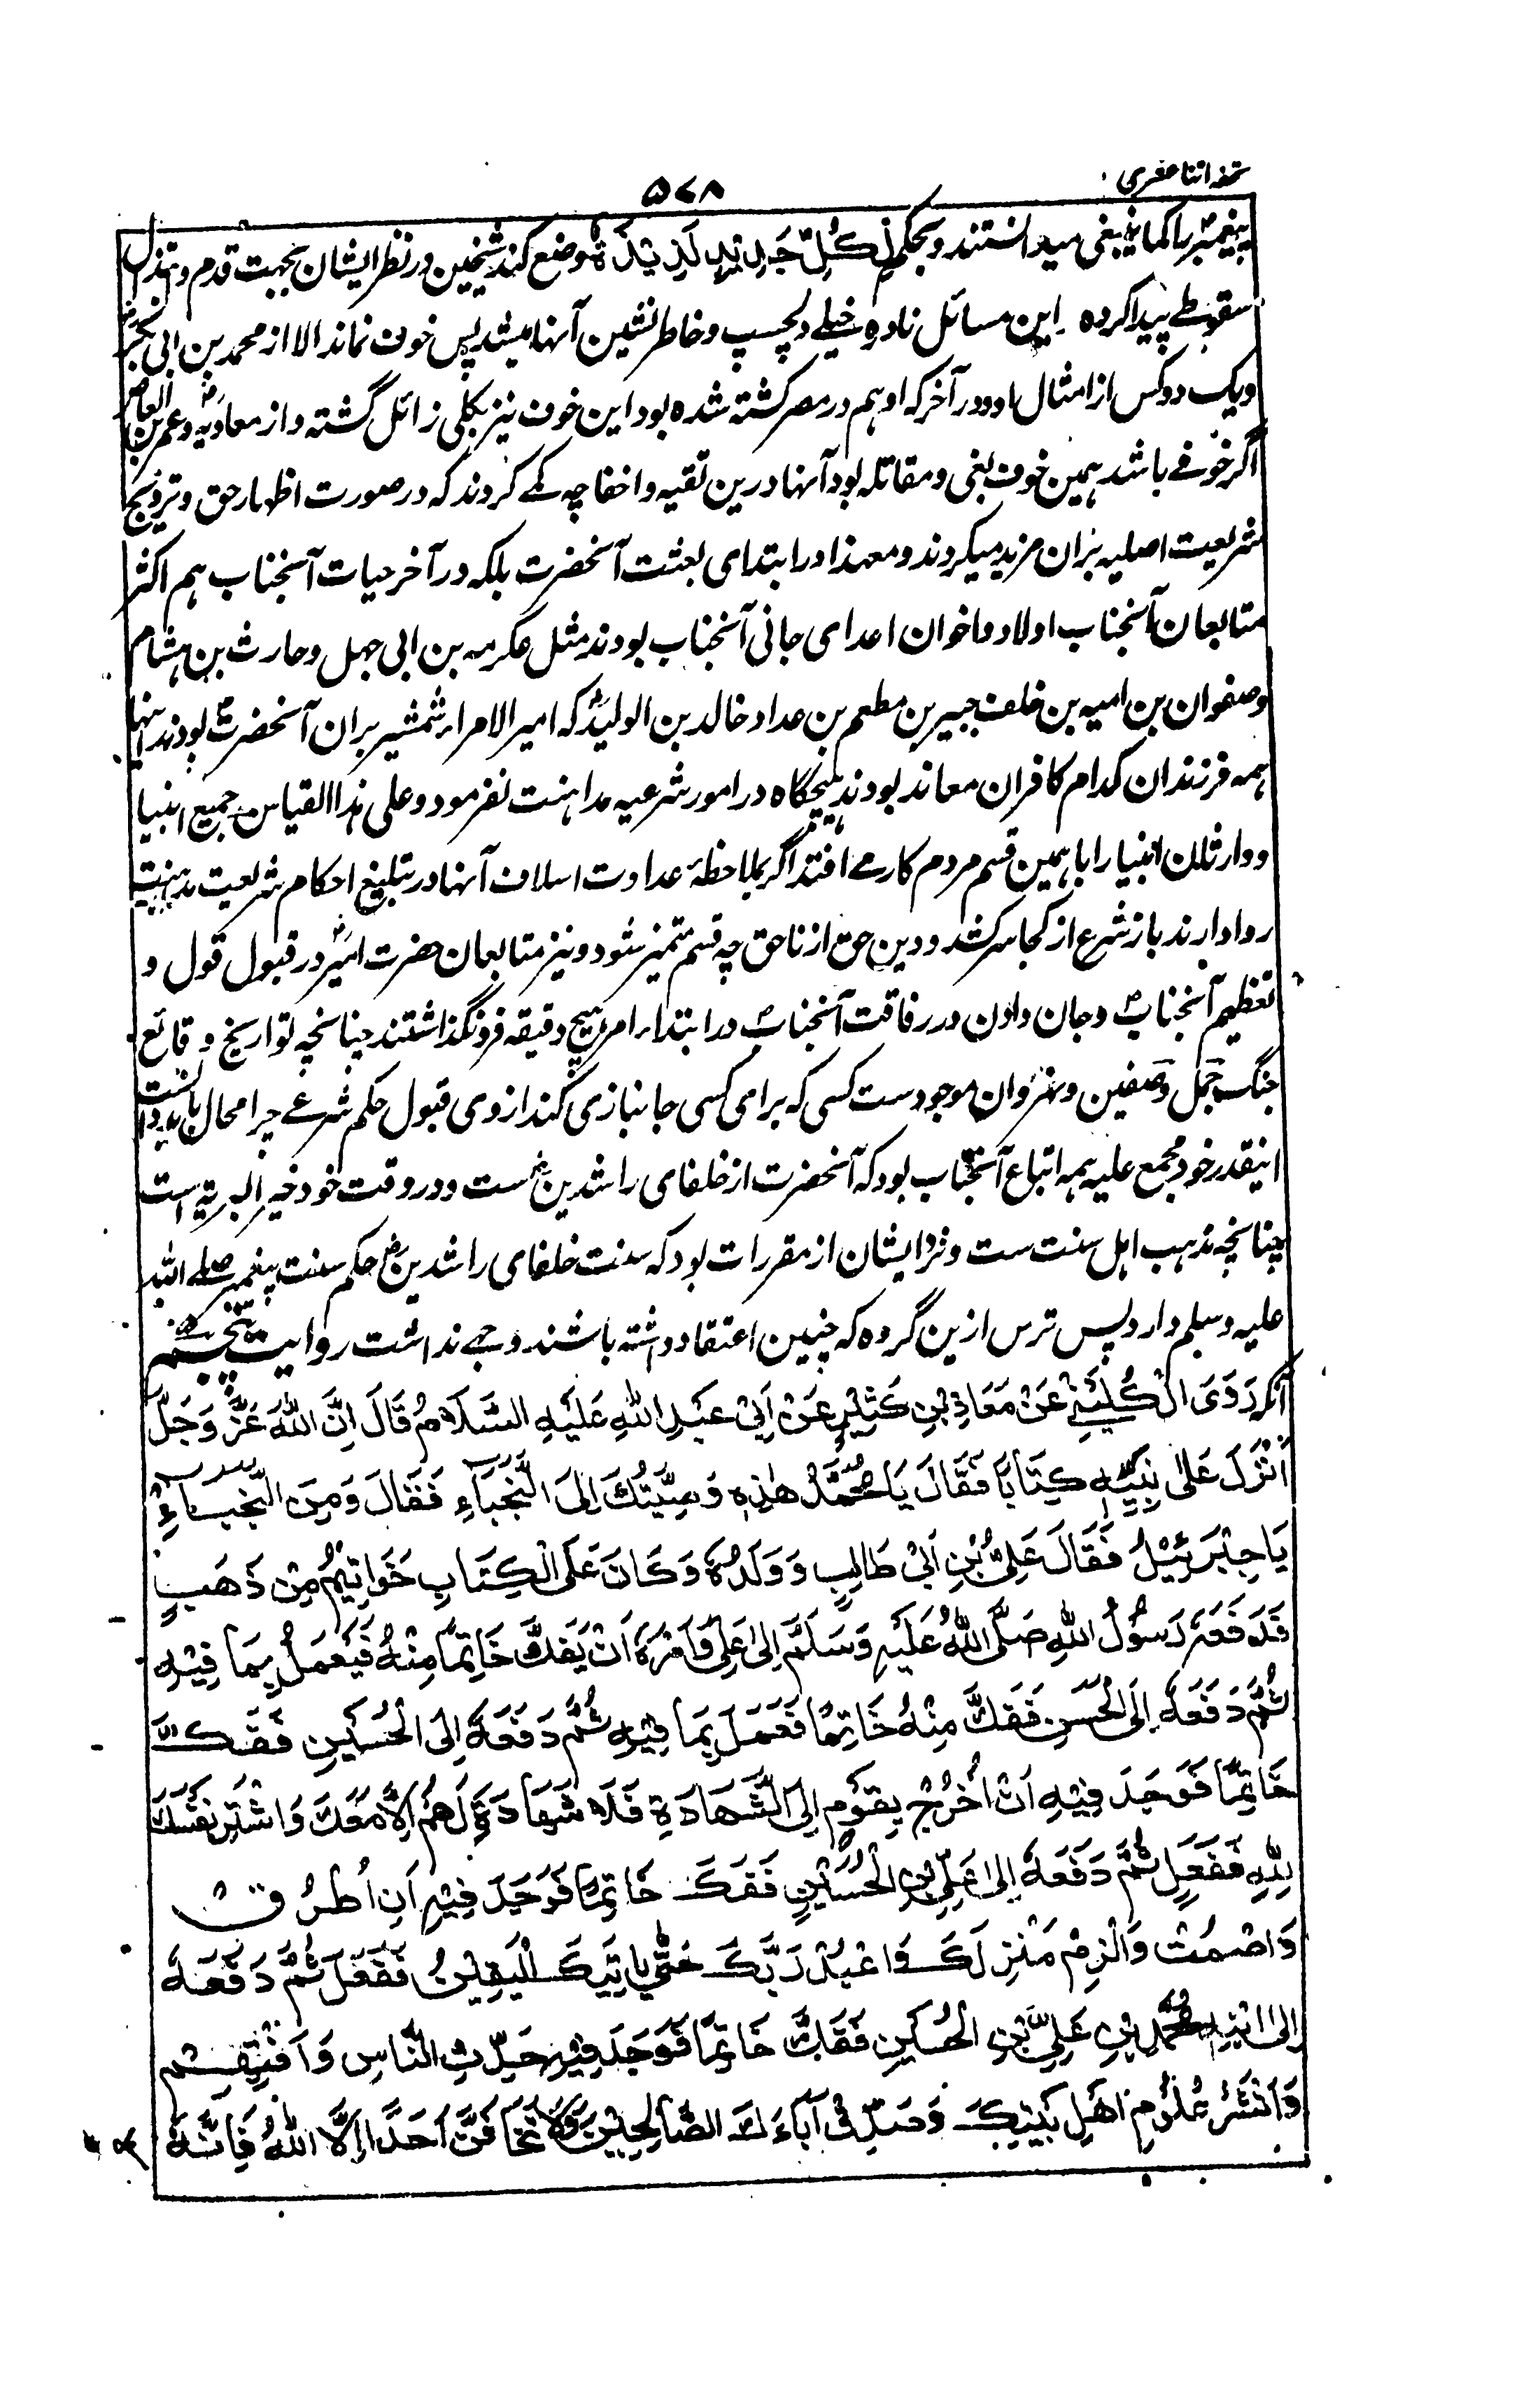 تحفه اثنا عشری
۵۷۸
پیغمبر را کما ینبغی میدانستند و بحکم کُلُّ جَدِیْدٍ لَذِیْذَةٌ وضع کند شیخین در نظر ایشان بجهت قدم و تبذل
سقوطے پیدا کرده این مسائل نادره خیلے دلچسپ و خاطر نشین آنها میشد پس خوف نماند الا از محمد بن ابی بکر
و یک دو کس از امثال او و در آخر که او هم در مصر کشته شده بود این خوف نیز بکلی زائل گشته و از معاویه و عمرو بن العاص
اگر خوفے باشد همین خوف بغی و مقاتله بود آنها درین تقیه و اخفا چه کمے کردند که در صورت اظهار حق و ترویج
شریعت اصلیه بران مزید میکردند و معهذا در ابتدای بعثت آنحضرت بلکه در آخر حیات آنجناب هم اکثر
متابعان آنجناب اولاد و اخوان اعدای جانی آنجناب بودند مثل عکرمه بن ابی جهل و حارث بن هشام
و صفوان بن امیه بن خلف جبیر بن مطعم بن عدا و خالد بن الولید که امیر الامرا و شمشیر بران آنحضرت بودند اینها
همه فرزندان کدام کافران معاند بودند هیچگاه در امور شرعیه مداهنت نفرمود و علی هذا القیاس جمیع انبیا
و وارثان انبیا را با همین قسم مردم کارے افتد اگر بملاحظۀ عداوت اسلاف آنها در تبلیغ احکام شریعت مداهنت
روا دارند باز شرع از کجا سر کشد و دین حق از ناحق چه قسم متمیز شود و نیز متابعان حضرت امیر در قبول قول و
تعظیم آنجناب و جان دادن در رفاقت آنجناب در ابتداء امر هیچ دقیقه فرو نگذاشتند چنانچه تواریخ وقائع
جنگ جمل و صفین و نهروان موجودست کسی که برای کسی جانبازی کند از وی قبول حکم شرعے چرا محال باید دانست
اینقدر خود مجمع علیه همه اتباع آنجناب بود که آنحضرت از خلفای راشدین ست و در وقت خود خیر البریة است
چنانچه مذهب اهل سنت ست و نزد ایشان از مقررات بود که سنت خلفای راشدین حکم سنت پیغمبر صلے الله
علیه و سلم دارد پس ترس ازین گروه که چنین اعتقاد داشته باشند وجهے نداشت روایت پنجم
آنکه رَوَی الْکُلَیْنِیُّ عَنْ مَعَاذِ بْنِ کَثِیْرٍ عَنْ اَبِیْ عَبْدِ اللهِ عَلَیْهِ السَّلَامُ قَالَ اِنَّ اللهَ عَزَّ وَجَلَّ
اَنْزَلَ عَلٰی نَبِیِّهٖ کِتَابًا فَقَالَ یَا مُحَمَّدُ هٰذِهٖ وَصِیَّتُکَ اِلَی النُّجَبَاءِ فَقَالَ وَمِنَ النُّجَبَاءِ
یَا جِبْرَئِیْلُ فَقَالَ عَلِیُّ بْنُ اَبِیْ طَالِبٍ وَوَلَدُهٗ وَکَانَ عَلَی الْکِتَابِ خَوَاتِیْمُ مِنْ ذَهَبٍ
فَدَفَعَهٗ رَسُوْلُ اللهِ صَلَّی اللهُ عَلَیْهِ وَسَلَّمَ اِلٰی عَلِیٍّ وَاَمَرَهٗ اَنْ یَفُکَّ خَاتِمًا مِنْهُ فَیَعْمَلُ بِمَا فِیْهِ
ثُمَّ دَفَعَهٗ اِلَی الْحَسَنِ فَفَکَّ مِنْهُ خَاتِمًا فَعَمِلَ بِمَا فِیْهِ ثُمَّ دَفَعَهٗ اِلَی الْحُسَیْنِ فَفَکَّ
خَاتِمًا فَوَجَدَ فِیْهِ اَنْ اُخْرُجْ بِقَوْمٍ اِلَی الشَّهَادَةِ فَلَا شَهَادَةَ لَهُمْ اِلَّا مَعَکَ وَاشْتَرِ نَفْسَکَ
لِلّٰهِ فَفَعَلَ ثُمَّ دَفَعَهٗ اِلٰی عَلِیِّ بْنِ الْحُسَیْنِ فَفَکَّ خَاتِمًا فَوَجَدَ فِیْهِ اَنْ اُطْرُقْ
وَاصْمُتْ وَالْزِمْ مَنْزِلَکَ وَاعْبُدْ رَبَّکَ حَتّٰی یَاتِیَکَ الْیَقِیْنُ فَفَعَلَ ثُمَّ دَفَعَهٗ
اِلٰی ابْنِهٖ مُحَمَّدِ بْنِ عَلِیِّ بْنِ الْحُسَیْنِ فَفَکَّ خَاتِمًا فَوَجَدَ فِیْهِ حَدِّثِ النَّاسَ وَاَفْتِهِمْ
وَانْشُرْ عُلُوْمَ اَهْلِ بَیْتِکَ وَصَدِّقْ آبَاءَکَ الصَّالِحِیْنَ وَلَا تَخَافَنَّ اَحَدًا اِلَّا اللهَ فَاِنَّهٗ